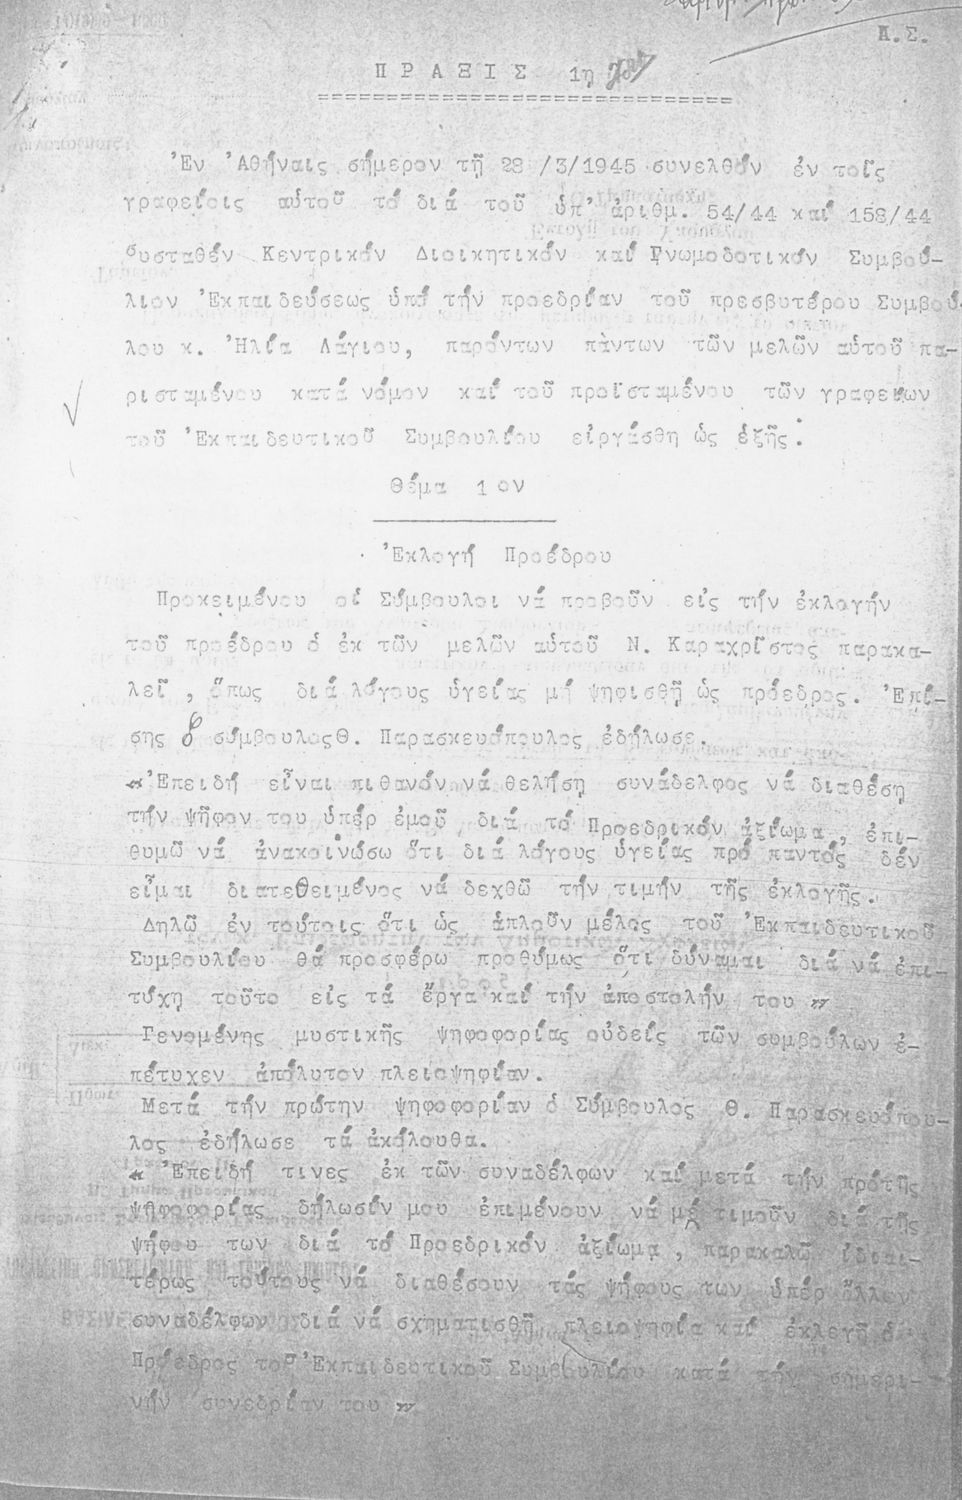 Α.Σ.
ΠΡΑΞΙΣ 1η
Ἐν Ἀθήναις σήμερον τῇ 28 /3/1945 συνελθόν ἐν τοῖς
γραφείοις αὐτοῦ τό διά τοῦ ὑπ' ἀριθμ. 54/44 καί 158/44
συσταθέν Κεντρικόν Διοικητικόν καί Γνωμοδοτικόν Συμβού-
λιον Ἐκπαιδεύσεως ὑπό τήν προεδρίαν τοῦ πρεσβυτέρου Συμβού-
λου κ. Ἠλία Λάγιου, παρόντων πάντων τῶν μελῶν αὐτοῦ πα-
ρισταμένου κατά νόμον καί τοῦ προϊσταμένου τῶν γραφείων
τοῦ Ἐκπαιδευτικοῦ Συμβουλίου εἰργάσθη ὡς ἑξῆς:
Θέμα 1 ον
Ἐκλογή Προέδρου
Προκειμένου οἱ Σύμβουλοι νά προβοῦν εἰς τήν ἐκλογήν
τοῦ προέδρου ὁ ἐκ τῶν μελῶν αὐτοῦ Ν. Καραχρῖστος παρακα-
λεῖ , ὅπως διά λόγους ὑγείας μή ψηφισθῇ ὡς πρόεδρος. Ἐπί-
σης ὁ σύμβουλος Θ. Παρασκευόπουλος ἐδήλωσε.
" Ἐπειδή εἶναι πιθανόν νά θελήσῃ συνάδελφος νά διαθέσῃ
τήν ψῆφον του ὑπέρ ἐμοῦ διά τό Προεδρικόν ἀξίωμα, ἐπι-
θυμῶ νά ἀνακοινώσω ὅτι διά λόγους ὑγείας πρό παντός δέν
εἶμαι διατεθειμένος νά δεχθῶ τήν τιμήν τῆς ἐκλογῆς.
Δηλῶ ἐν τούτοις ὅτι ὡς ἁπλοῦν μέλος τοῦ Ἐκπαιδευτικοῦ
Συμβουλίου θά προσφέρω προθύμως ὅτι δύναμαι διά νά ἐπι-
τύχῃ τοῦτο εἰς τά ἔργα καί τήν ἀποστολήν του "
Γενομένης μυστικῆς ψηφοφορίας οὐδείς τῶν συμβούλων ἐ-
πέτυχεν ἀπόλυτον πλειοψηφίαν.
Μετά τήν πρώτην ψηφοφορίαν ὁ Σύμβουλος Θ. Παρασκευόπου-
λος ἐδήλωσε τά ἀκόλουθα.
" Ἐπειδή τινες ἐκ τῶν συναδέλφων καί μετά τήν πρότης
ψηφοφορίας δήλωσίν μου ἐπιμένουν νά μέ τιμοῦν διά τῆς
ψήφου των διά τό Προεδρικόν ἀξίωμα, παρακαλῶ ἰδιαι-
τέρως τούτους νά διαθέσουν τάς ψήφους των ὑπέρ ἄλλων
συναδέλφων διά νά σχηματισθῇ πλειοψηφία καί ἐκλεγῇ ὁ
Πρόεδρος τοῦ Ἐκπαιδευτικοῦ Συμβουλίου κατά τήν σημερι-
νήν συνεδρίαν του "